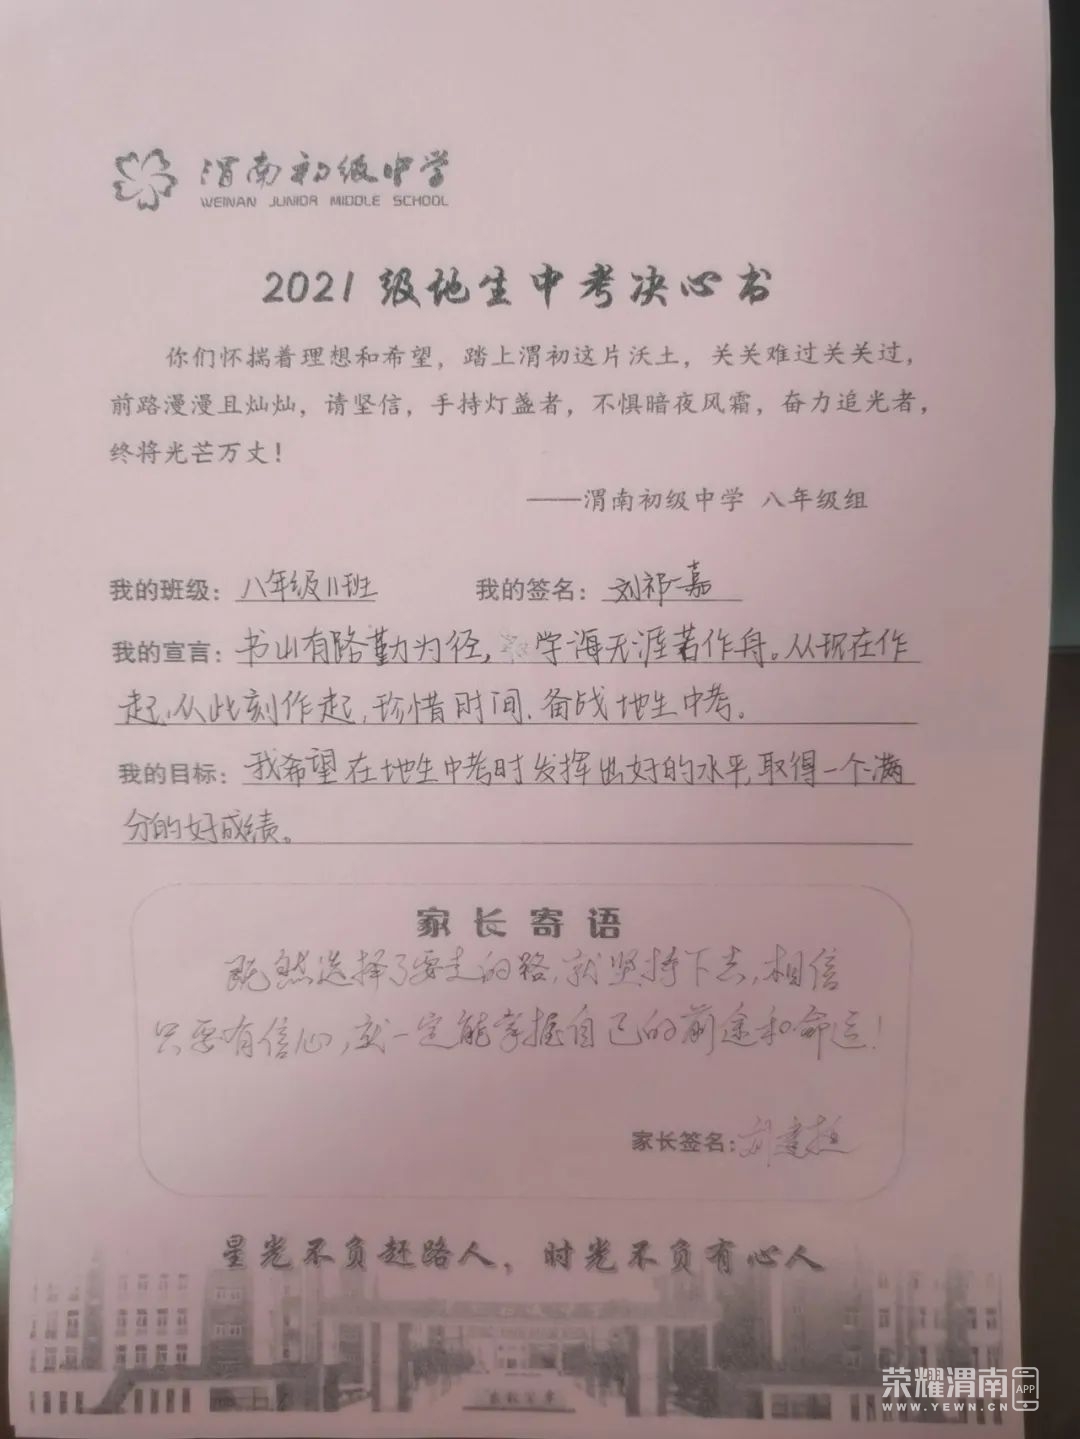 渭南初级中学
WEINAN JUNIOR MIDDLE SCHOOL
2021级地生中考决心书
你们怀揣着理想和希望，踏上渭初这片沃土，关关难过关关过，
前路漫漫且灿灿，请坚信，手持灯盏者，不惧暗夜风霜，奋力追光者，
终将光芒万丈！
——渭南初级中学 八年级组
我的班级：八年级11班 我的签名：刘祁嘉
我的宣言：书山有路勤为径，学海无涯苦作舟。从现在作
起，从此刻作起，珍惜时间、备战地生中考。
我的目标：我希望在地生中考时发挥出好的水平，取得一个满
分的好成绩。
家长寄语
既然选择了要走的路，就坚持下去，相信
只要有信心，就一定能掌握自己的前途和命运！
家长签名：
星光不负赶路人，时光不负有心人
荣耀渭南 APP
WWW.YEWN.CN